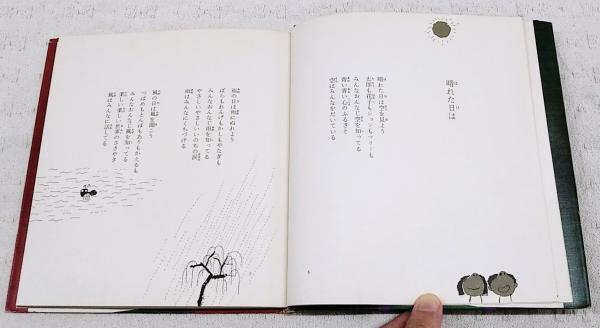 晴れた日は
晴れた日は空を見よう
太郎も花子もジョンもマリーも
みんなおんなじ空を知ってる
青い青い心のふるさと
空はみんなをだいている
雨の日は雨にぬれよう
ばらもれんげもかしもやなぎも
みんなおんなじ雨を知ってる
やさしいやさしいいのちの涙
雨はみんなにくちづける
風の日は風を聞こう
つばめもとんぼもありもかえるも
みんなおんなじ風を知ってる
楽しい楽しい世界のささやき
風はみんなに話してる